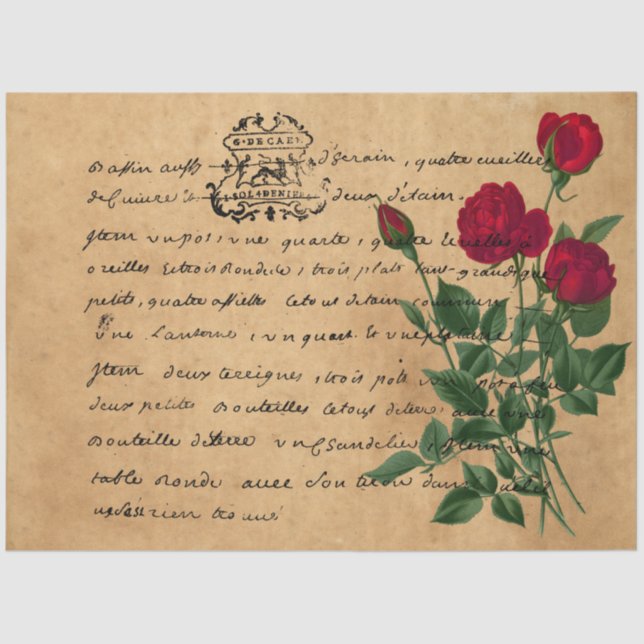 G · DE CAEN
SOL 4 DENIERS
Bassin aussi d'Serain, quatre cueilliers
de Cuivre et deux d'étain.
Jtem un pot, une quarte, quatre Ecuelles à
oreilles Et trois Rondes, trois plats tant grands que
petits, quatre assiettes Le tout d'étain commun
une Lanterne, un quart. Et une
Jtem deux terrines, trois pots un pot a feu
deux petites Bouteilles Le tout de terre avec une
Bouteille de terre un Chandelier, Jtem une
table Ronde avec Son tiroir dans
rien trouvé